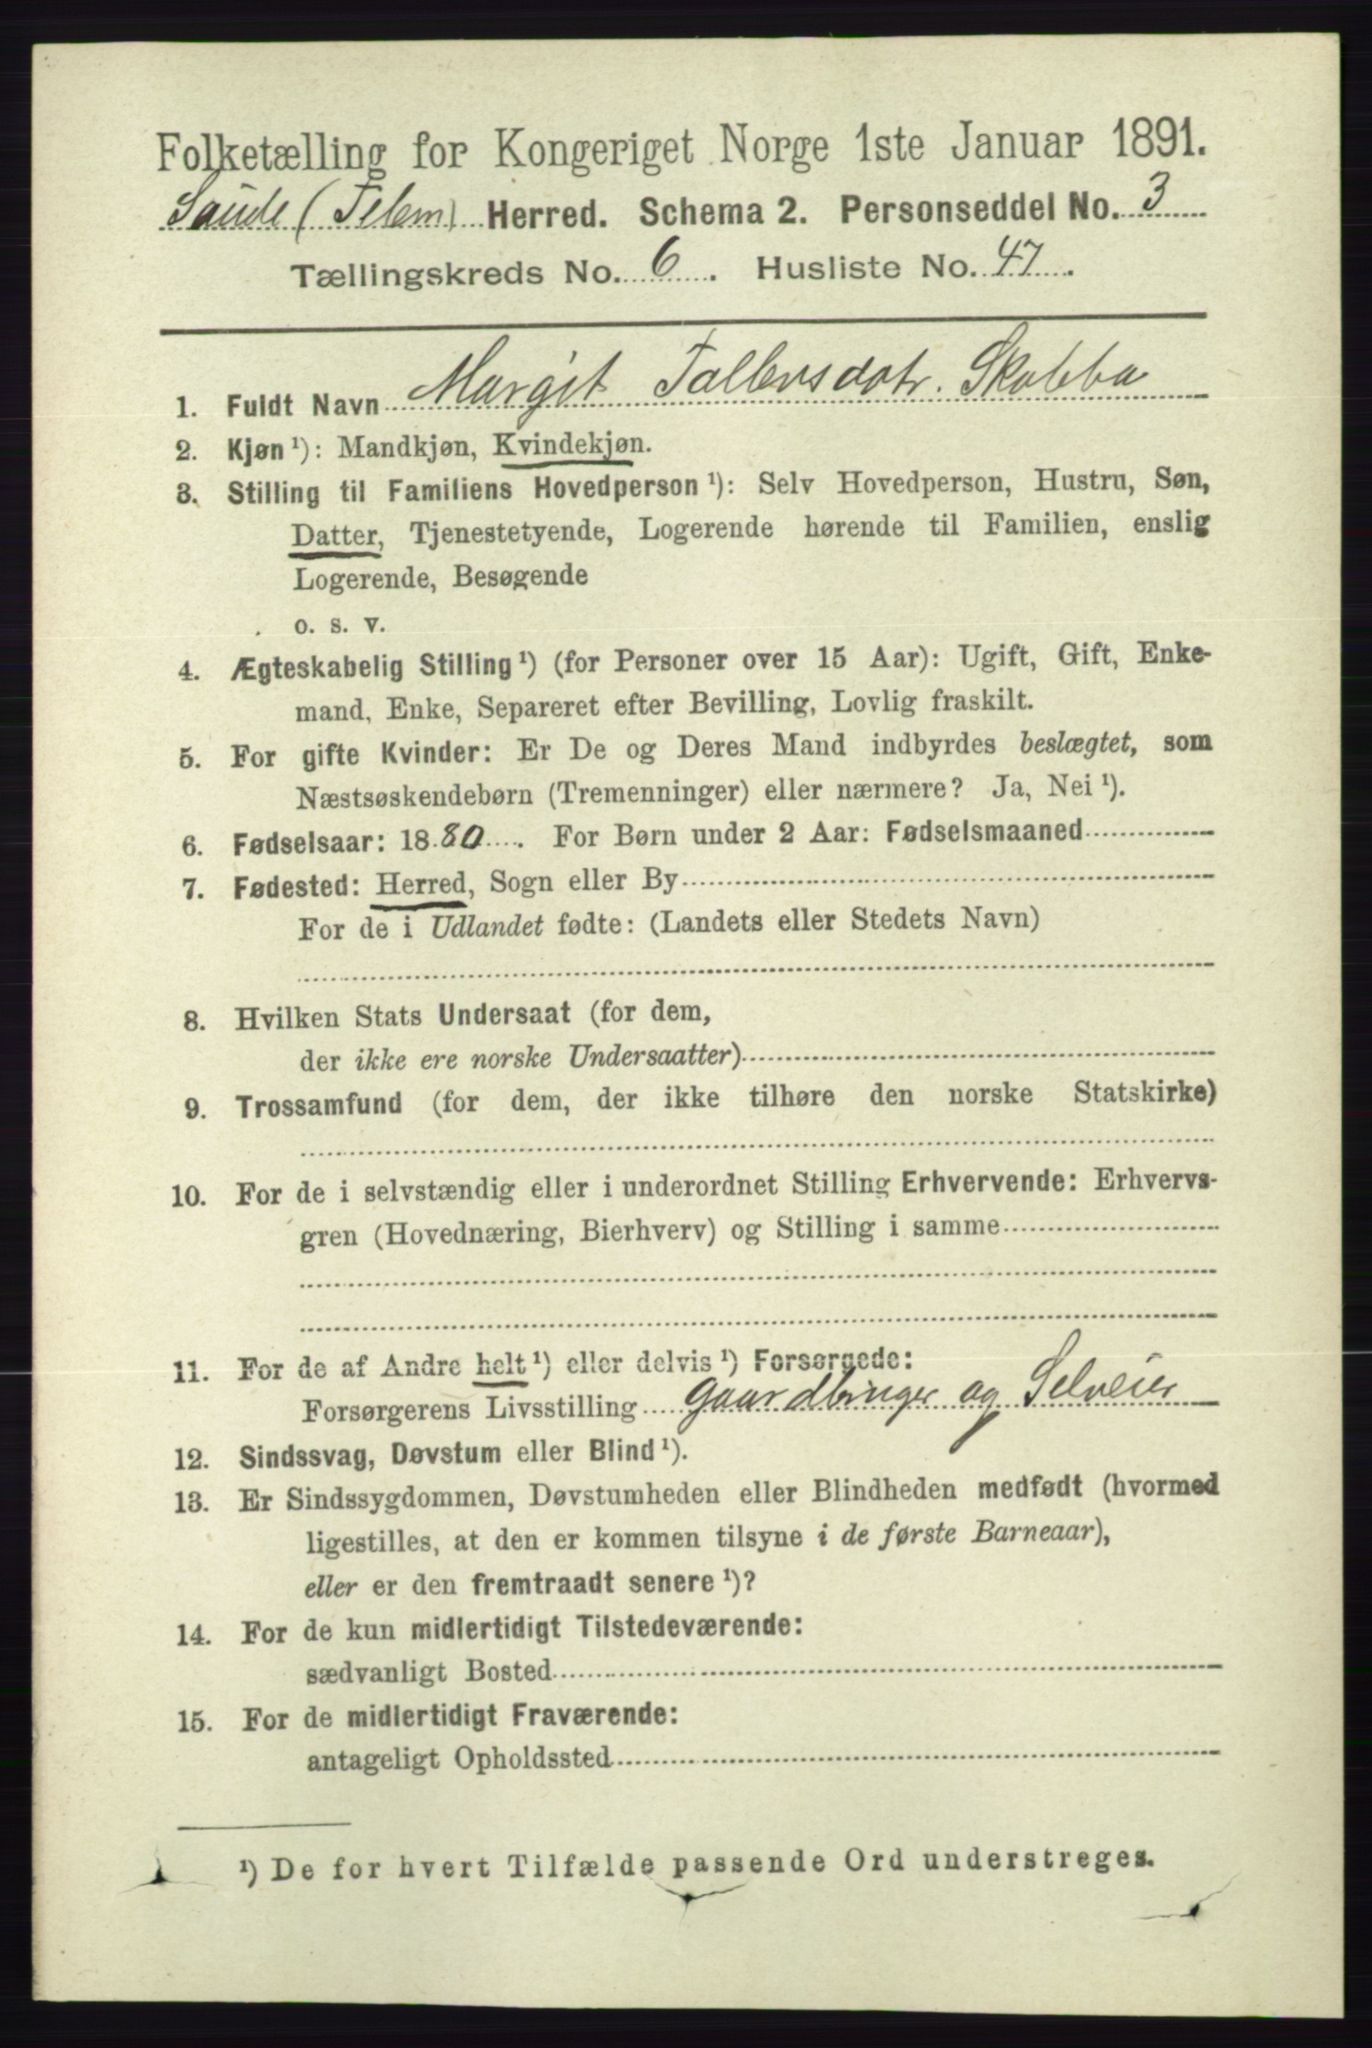 Folketælling for Kongeriget Norge 1ste Januar 1891.
Saude (Telem) Herred. Schema 2. Personseddel No. 3
Tællingskreds No. 6. Husliste No. 47.
1. Fuldt Navn Margit Tallevsdotr. Skobba
2. Kjøn ¹): Mandkjøn, Kvindekjøn.
3. Stilling til Familiens Hovedperson ¹): Selv Hovedperson, Hustru, Søn,
Datter, Tjenestetyende, Logerende hørende til Familien, enslig
Logerende, Besøgende
o. s. v.
4. Ægteskabelig Stilling ¹) (for Personer over 15 Aar): Ugift, Gift, Enke-
mand, Enke, Separeret efter Bevilling, Lovlig fraskilt.
5. For gifte Kvinder: Er De og Deres Mand indbyrdes beslægtet, som
Næstsøskendebørn (Tremenninger) eller nærmere? Ja, Nei ¹).
6. Fødselsaar: 1880. For Børn under 2 Aar: Fødselsmaaned
7. Fødested: Herred, Sogn eller By
For de i Udlandet fødte: (Landets eller Stedets Navn)
8. Hvilken Stats Undersaat (for dem,
der ikke ere norske Undersaatter)
9. Trossamfund (for dem, der ikke tilhøre den norske Statskirke)
10. For de i selvstændig eller i underordnet Stilling Erhvervende: Erhvervs-
gren (Hovednæring, Bierhverv) og Stilling i samme
11. For de af Andre helt ¹) eller delvis ¹) Forsørgede:
Forsørgerens Livsstilling Gaardbruger og Selveier
12. Sindssvag, Døvstum eller Blind ¹).
13. Er Sindssygdommen, Døvstumheden eller Blindheden medfødt (hvormed
ligestilles, at den er kommen tilsyne i de første Barneaar),
eller er den fremtraadt senere ¹)?
14. For de kun midlertidigt Tilstedeværende:
sædvanligt Bosted
15. For de midlertidigt Fraværende:
antageligt Opholdssted
¹) De for hvert Tilfælde passende Ord understreges.